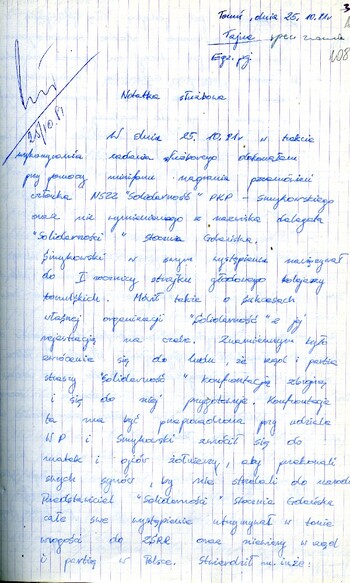 Toruń, dnia 25.10.81r
Tajne spec. znaczenia
Egz. pj
3
108
25/10.81
Notatka służbowa
W dnia 25.10.81r w trakcie
wykonywania zadania służbowego dokonałem
przy pomocy minifonu nagrania przemówień
członka NSZZ "Solidarność" PKP - Smykowskiego
oraz nie wymienionego z nazwiska delegata
"Solidarności" Stocznia Gdańska.
Smykowski w swym wystąpieniu nawiązywał
do II rocznicy strajku głodowego kolejarzy
toruńskich. Mówił także o sukcesach
własnej organizacji "Solidarność" z jej
rejestracją na czele. Znamiennym było
zwrócenie się do ludu, że rząd i partia
straszy "Solidarność" konfrontacją zbrojną
i się do niej przygotowuje. Konfrontacja
ta ma być przeprowadzona przy udziale
WP i Smykowski zwrócił się do
matek i ojców żołnierzy, aby przekonali
swych synów, by nie strzelali do narodu.
Przedstawiciel "Solidarności" Stocznia Gdańska
całe swe wystąpienie utrzymywał w tonie
wrogości do ZSRR oraz niewiary w rząd
i partię w Polsce. Stwierdził m. inż: